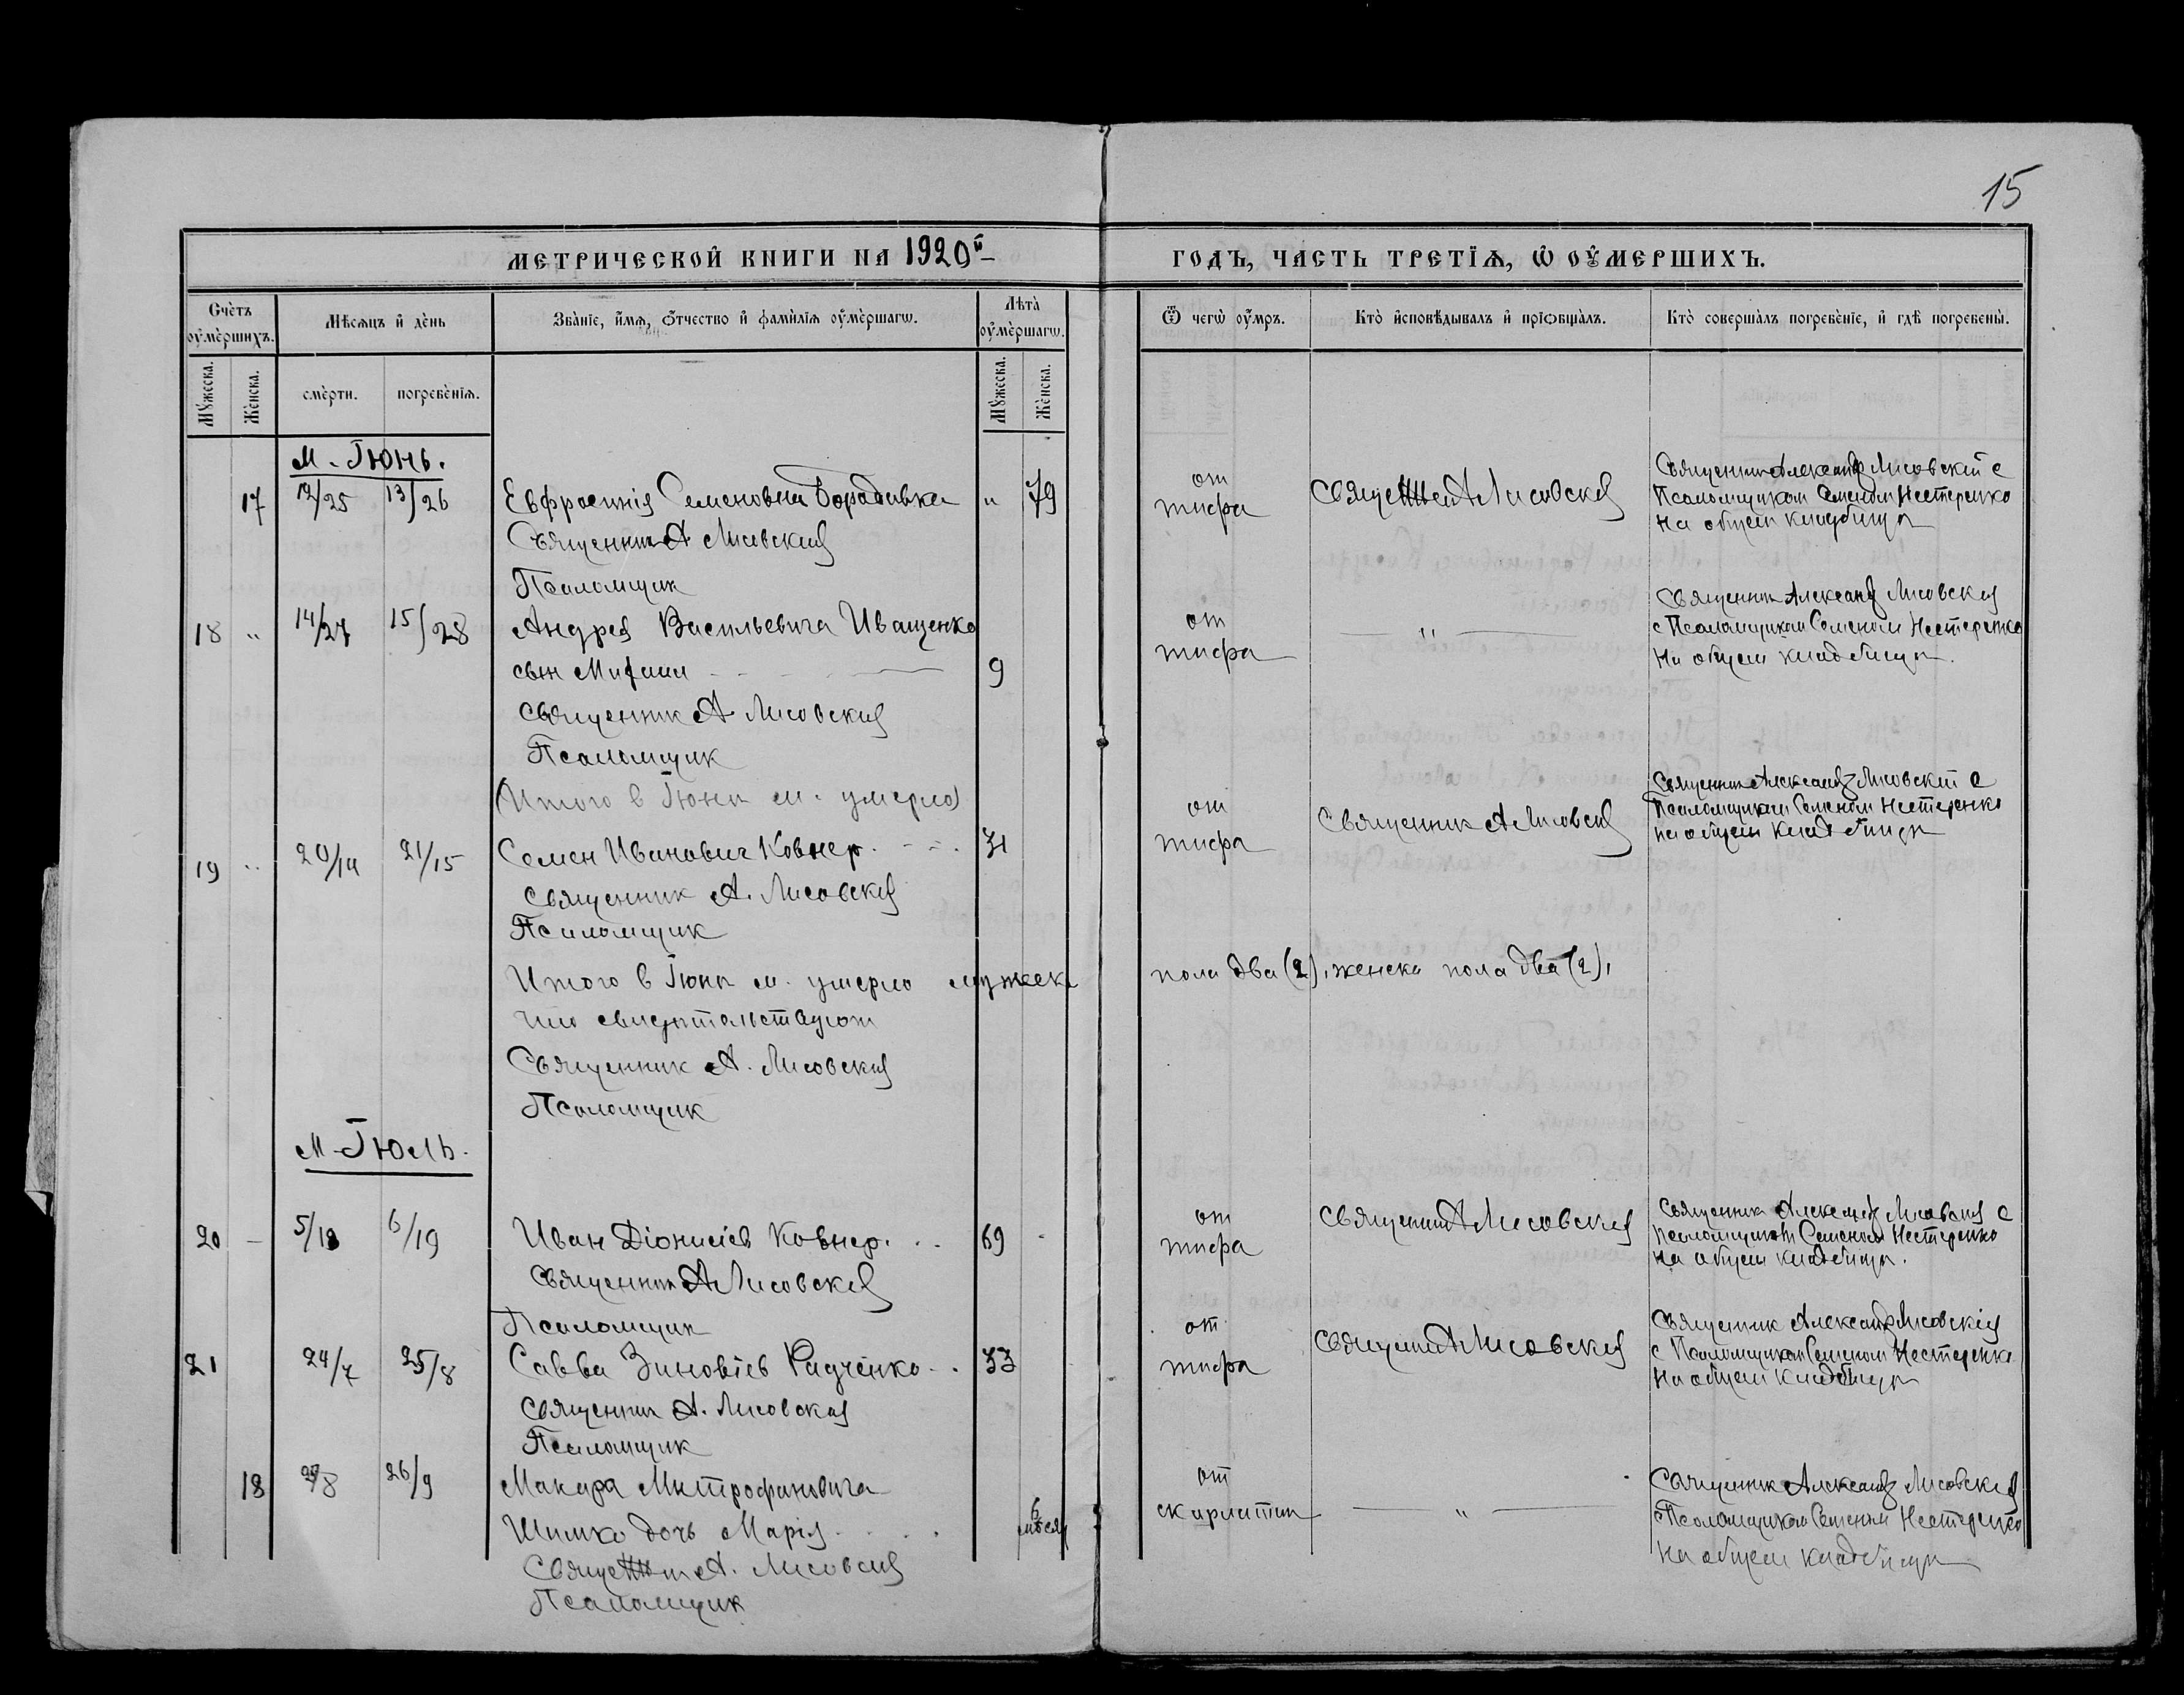 15
МЕТРИЧЕСКОЙ КНИГИ НА 1920й
ГОДЪ, ЧАСТЬ ТРЕТІѦ, Ѡ ОУМЕРШИХЪ.
Счетъ оумершихъ.
Мѣсѧцъ и день
Званіе, имѧ, отчество и фамилїѧ оумершагѡ.
Лѣта оумершагѡ.
Ѿ чегѡ оумръ.
Кто исповѣдывалъ и прїобщалъ.
Кто совершалъ погребенїе, и гдѣ погребены.
Мужеска.
Женска.
смерти.
погребенїѧ.
Мужеска.
Женска.
м. Іюнь.
17 12/25 13/26 Евфросинія Семеновна Борадавка " 79
от тифа
Священник А Лисовский
Священник Александр Лисовский с
Псаломщиком Семеном Нестеренко
на общем кладбищѣ
Священник А Лисовский
Псаломщик
18 " 14/27 15/28 Андрея Васильевича Иващенко
сын Михаил 9
от тифа
"
Священник Александр Лисовский
с Псаломщиком Семеном Нестеренко
на общем кладбищѣ.
Священник А Лисовский
Псаломщик
(Итого в Іюнѣ м. умерло)
19 " 21/15 Семен Иванович Ковнер 31
от тифа
Священник А Лисовский
Священник Александр Лисовский с
Псаломщиком Семеном Нестеренко
на общем кладбищѣ
Священник А. Лисовский
Псаломщик
Итого в Іюнѣ м. умерло мужеска пола два (2), женска пола два (2),
что свидѣтельствуют
Священник А. Лисовский
Псаломщик
м. Іюль.
20 – 5/18 6/19 Иван Діонисіев Ковнер 69
от тифа
Священник А Лисовский
Священник Александр Лисовский с
Псаломщиком Семеном Нестеренко
на общем кладбищѣ.
Священник А Лисовский
Псаломщик
21 24/7 25/8 Савва Зиновіев Радченко 33
от тифа
Священник А Лисовский
Священник Александр Лисовскій
с Псаломщиком Семеном Нестеренко
на общем кладбищѣ
Священник А. Лисовский
Псаломщик
18 26/9 Макара Митрофановича
Шимко дочь Марія 6 месяц
от скарлатин
"
Священник Александр Лисовский
с Псаломщиком Семеном Нестеренко
на общем кладбищѣ
Священник А. Лисовский
Псаломщик